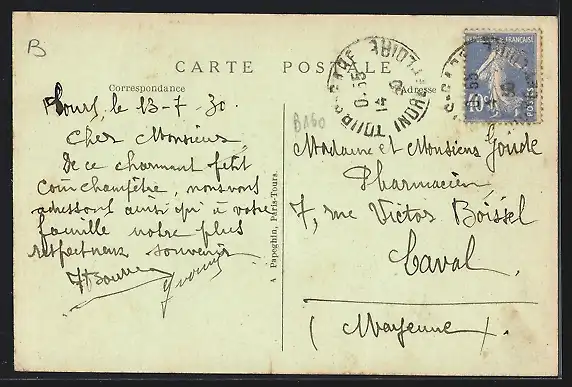 B
CARTE POSTALE
Correspondance
Adresse
Tours, le 13-7-30.
Cher Monsieur
De ce charmant petit
coin champêtre, nous vous
adressons ainsi qu'à votre
famille notre plus
respectueux souvenir
Yvonne
A. Papeghin, Paris-Tours.
B160
Madame et Monsieur Goude
Pharmacien
7, rue Victor Boissel
Laval
(Mayenne).
REPUBLIQUE FRANÇAISE
40c
POSTES
TOURS-GARE
INDRE-ET-LOIRE
14
30